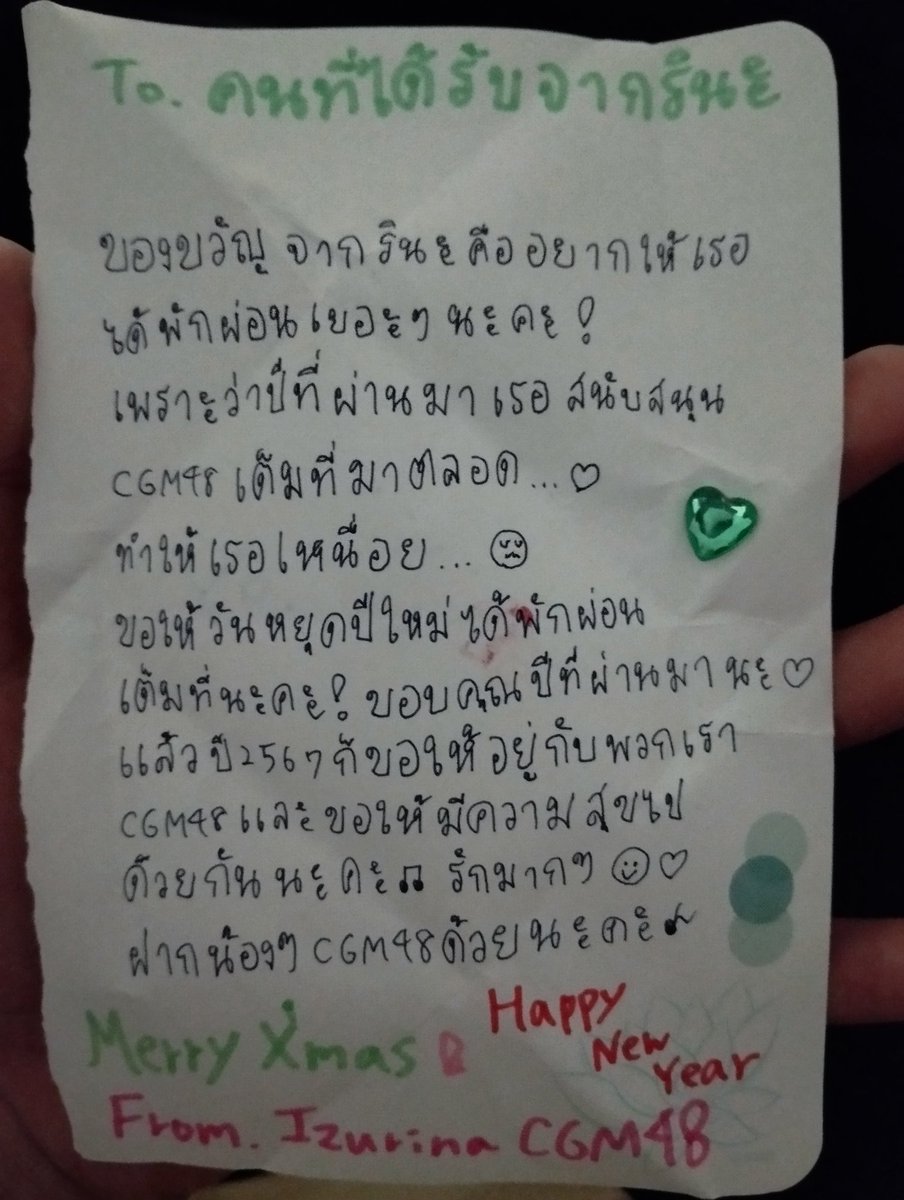 To. คนที่ได้รับจากรินะ
ของขวัญจากรินะคืออยากให้เธอ
ได้พักผ่อนเยอะๆ นะคะ!
เพราะว่าปีที่ผ่านมาเธอสนับสนุน
CGM48 เต็มที่มาตลอด...♡
ทำให้เธอเหนื่อย...
ขอให้วันหยุดปีใหม่ได้พักผ่อน
เต็มที่นะคะ! ขอบคุณปีที่ผ่านมานะ♡
แล้วปี2567ก็ขอให้อยู่กับพวกเรา
CGM48และขอให้มีความสุขไป
ด้วยกันนะคะ♫ รักมากๆ ☺♡
ฝากน้องๆ CGM48ด้วยนะคะ♪
Merry Xmas
Happy
New
Year
From. Izurina CGM48